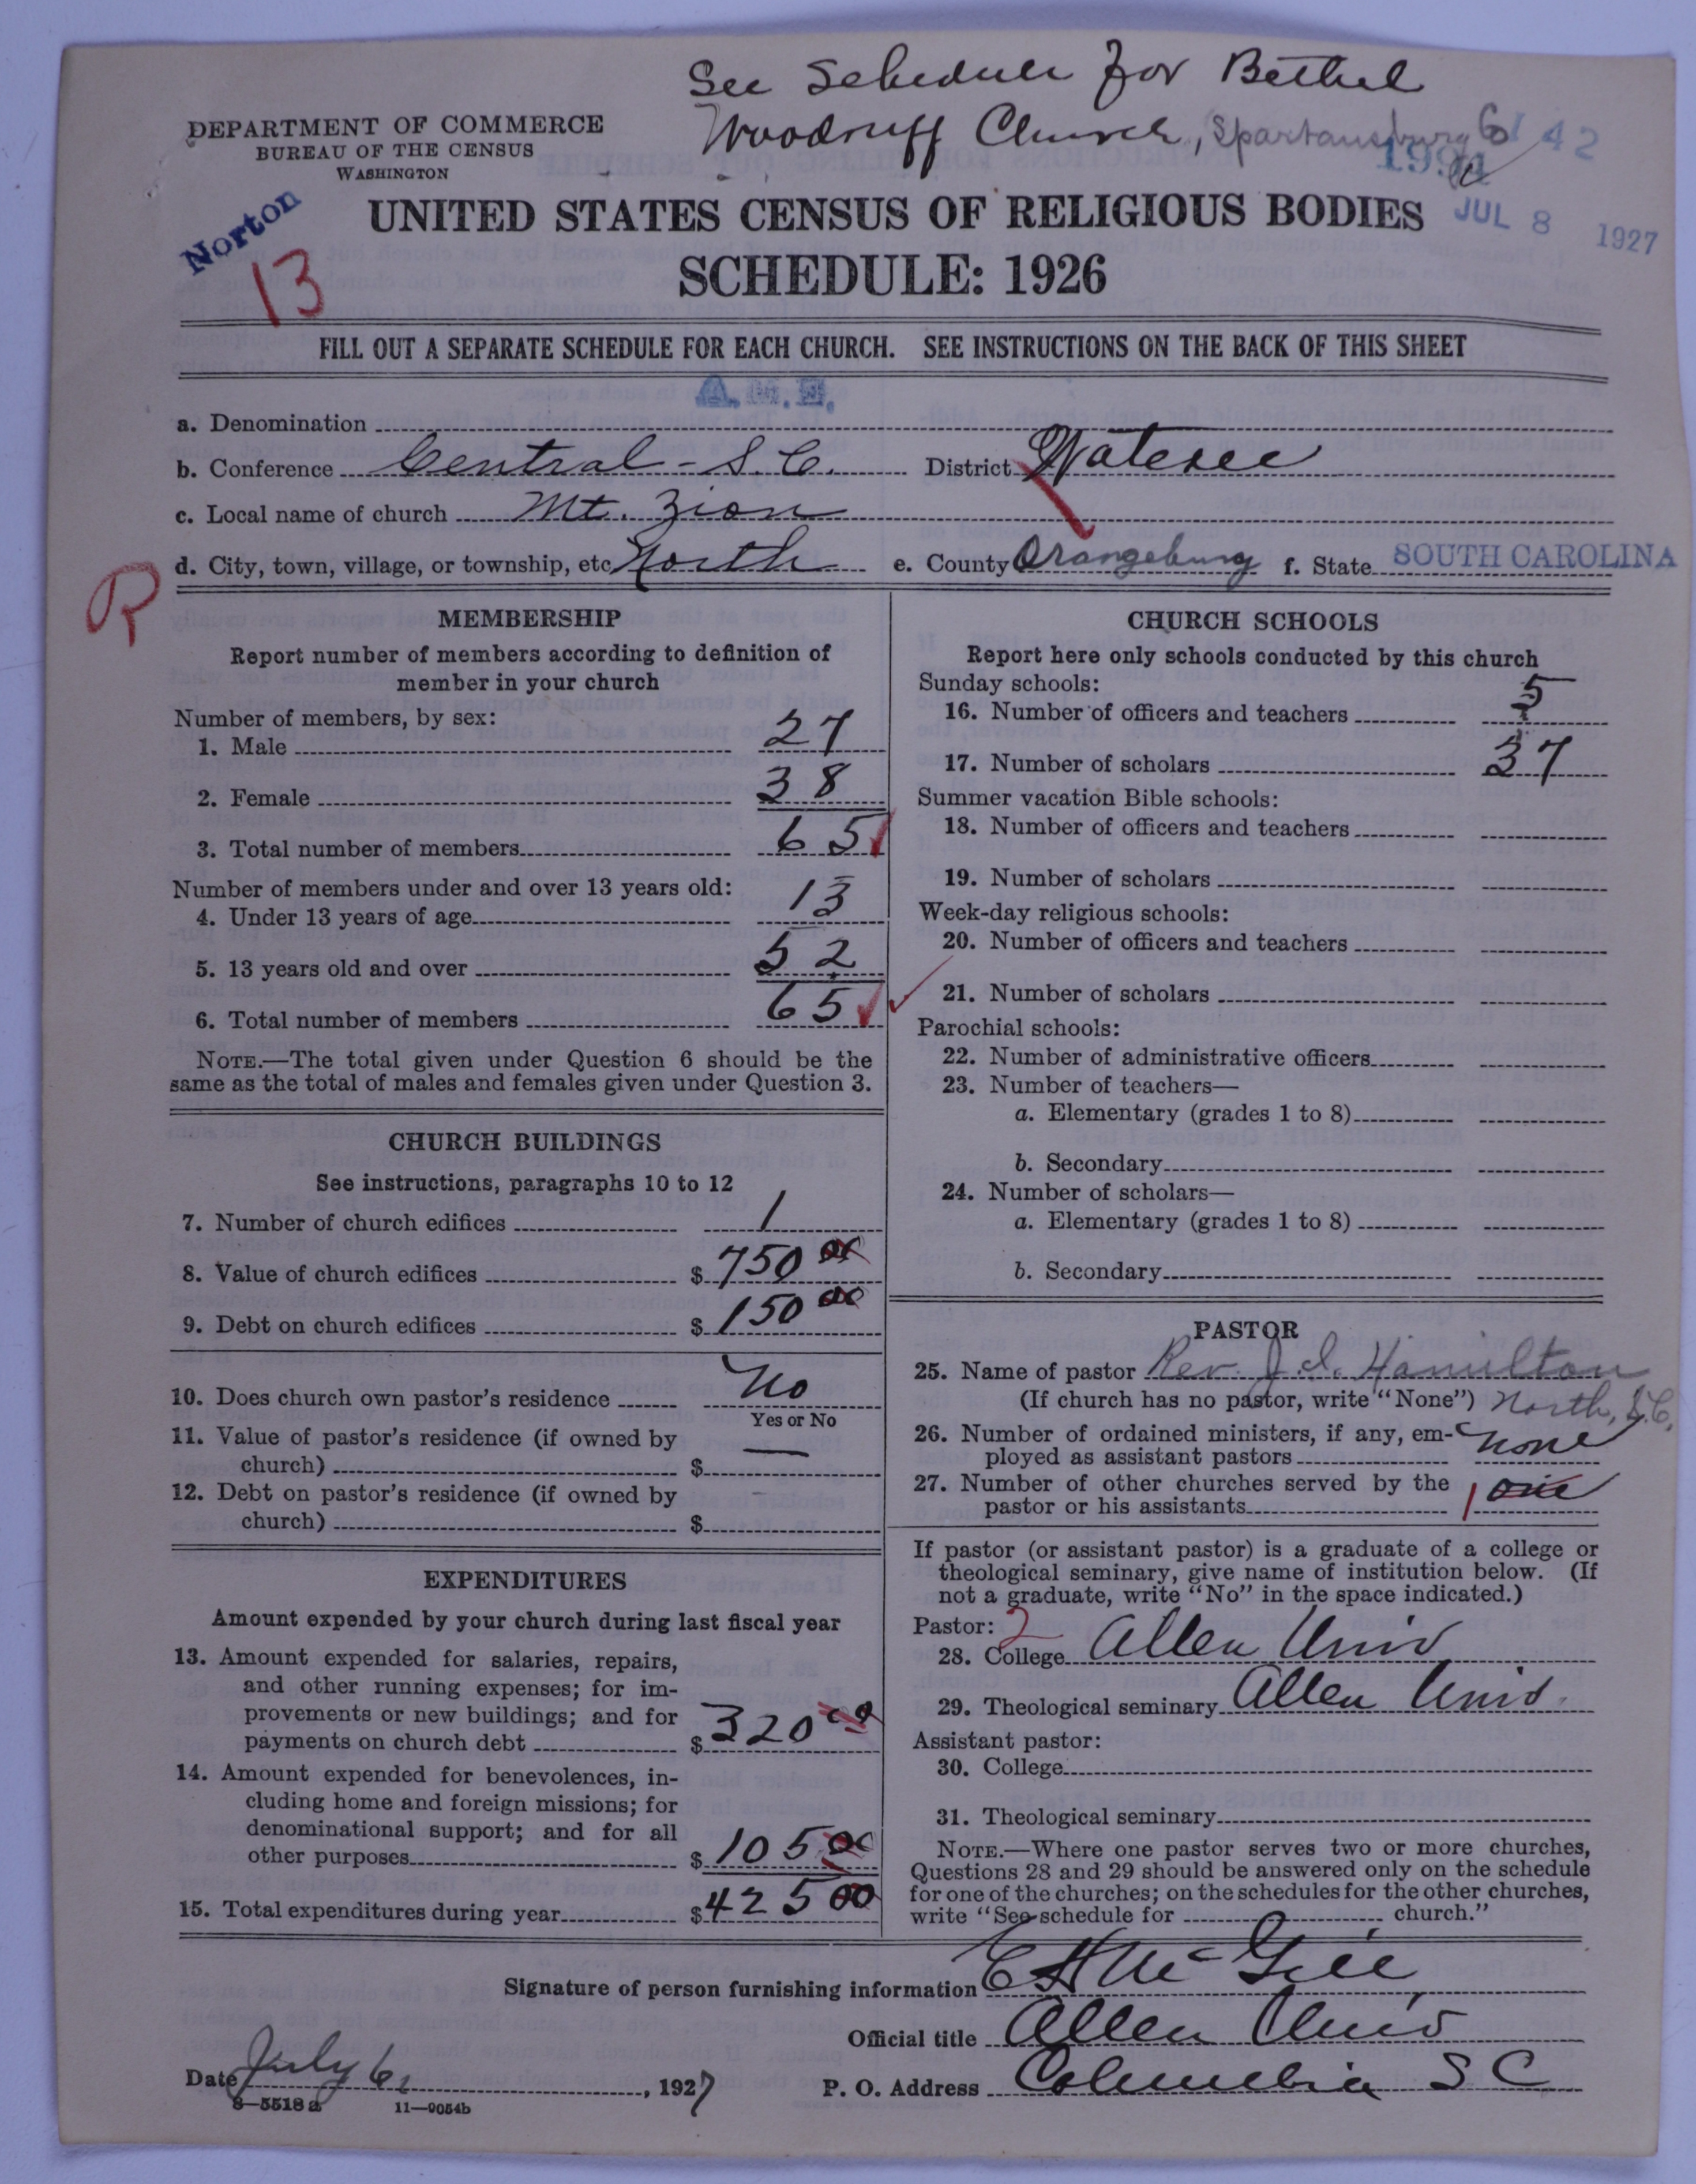 See Schedule for Bethel
Woodruff Church, Spartansburg Co
DEPARTMENT OF COMMERCE
BUREAU OF THE CENSUS
WASHINGTON
142
JUL 8 1927
Norton
13
UNITED STATES CENSUS OF RELIGIOUS BODIES
SCHEDULE: 1926
FILL OUT A SEPARATE SCHEDULE FOR EACH CHURCH. SEE INSTRUCTIONS ON THE BACK OF THIS SHEET
A.M.E.
a. Denomination
b. Conference Central - S.C. District Wateree
c. Local name of church Mt. Zion
d. City, town, village, or township, etc. North e. County Orangeburg f. State SOUTH CAROLINA
R
MEMBERSHIP
Report number of members according to definition of
member in your church
Number of members, by sex:
1. Male 27
2. Female 38
3. Total number of members 65
Number of members under and over 13 years old:
4. Under 13 years of age 13
5. 13 years old and over 52
6. Total number of members 65
NOTE.—The total given under Question 6 should be the
same as the total of males and females given under Question 3.
CHURCH BUILDINGS
See instructions, paragraphs 10 to 12
7. Number of church edifices 1
8. Value of church edifices $ 750 00
9. Debt on church edifices $ 150 00
10. Does church own pastor's residence No
Yes or No
11. Value of pastor's residence (if owned by
church) $ —
12. Debt on pastor's residence (if owned by
church) $
EXPENDITURES
Amount expended by your church during last fiscal year
13. Amount expended for salaries, repairs,
and other running expenses; for im-
provements or new buildings; and for
payments on church debt $ 320 00
14. Amount expended for benevolences, in-
cluding home and foreign missions; for
denominational support; and for all
other purposes $ 105 00
15. Total expenditures during year $ 425 00
CHURCH SCHOOLS
Report here only schools conducted by this church
Sunday schools:
16. Number of officers and teachers 5
17. Number of scholars 37
Summer vacation Bible schools:
18. Number of officers and teachers
19. Number of scholars
Week-day religious schools:
20. Number of officers and teachers
21. Number of scholars
Parochial schools:
22. Number of administrative officers
23. Number of teachers—
a. Elementary (grades 1 to 8)
b. Secondary
24. Number of scholars—
a. Elementary (grades 1 to 8)
b. Secondary
PASTOR
25. Name of pastor Rev. J. I. Hamilton
(If church has no pastor, write "None") North, S.C.
26. Number of ordained ministers, if any, em-
ployed as assistant pastors none
27. Number of other churches served by the
pastor or his assistants 1 one
If pastor (or assistant pastor) is a graduate of a college or
theological seminary, give name of institution below. (If
not a graduate, write "No" in the space indicated.)
Pastor: 2
28. College Allen Univ
29. Theological seminary Allen Univ.
Assistant pastor:
30. College
31. Theological seminary
NOTE.—Where one pastor serves two or more churches,
Questions 28 and 29 should be answered only on the schedule
for one of the churches; on the schedules for the other churches,
write "See schedule for church."
Signature of person furnishing information E H McGill
Official title Allen Univ
Date July 6, 1927 P. O. Address Columbia S C
8—5518a 11—9054b